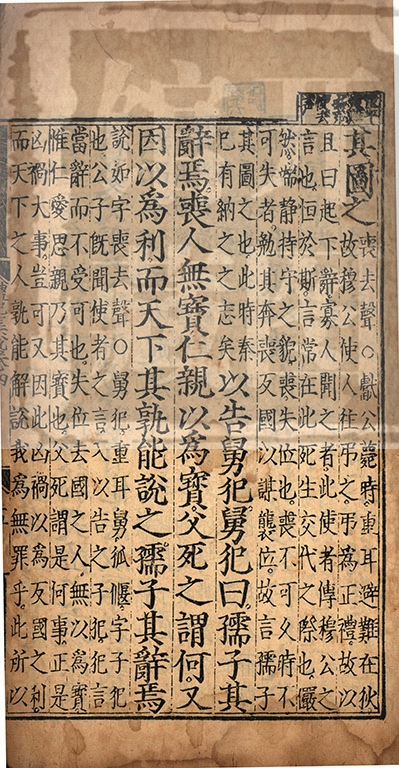 其圖之喪去聲○獻公薨時重耳避難在狄
故穆公使人往弔之弔為正禮故以
且曰起下辭寡人聞之者此使者傳穆公之
言也恒於斯言常在此死生交代之際也儼
然端靜持守之貌喪失位也喪不可久時不
可失者勉其奔喪反國以謀襲位故言孺子
其圖之也此時秦
已有納之之志矣以告舅犯舅犯曰孺子其
辭焉喪人無寶仁親以為寶父死之謂何又
因以為利而天下其孰能說之孺子其辭焉
說如字喪去聲○舅犯重耳舅狐偃字子犯
也公子既聞使者之言入以告之子犯犯言
當辭而不受可也失位去國之人無以為寶
惟仁愛思親乃其寶也父死謂是何事正是
凶禍大事豈可又因此凶禍以為反國之利
而天下之人孰能解說我為無罪乎此所以